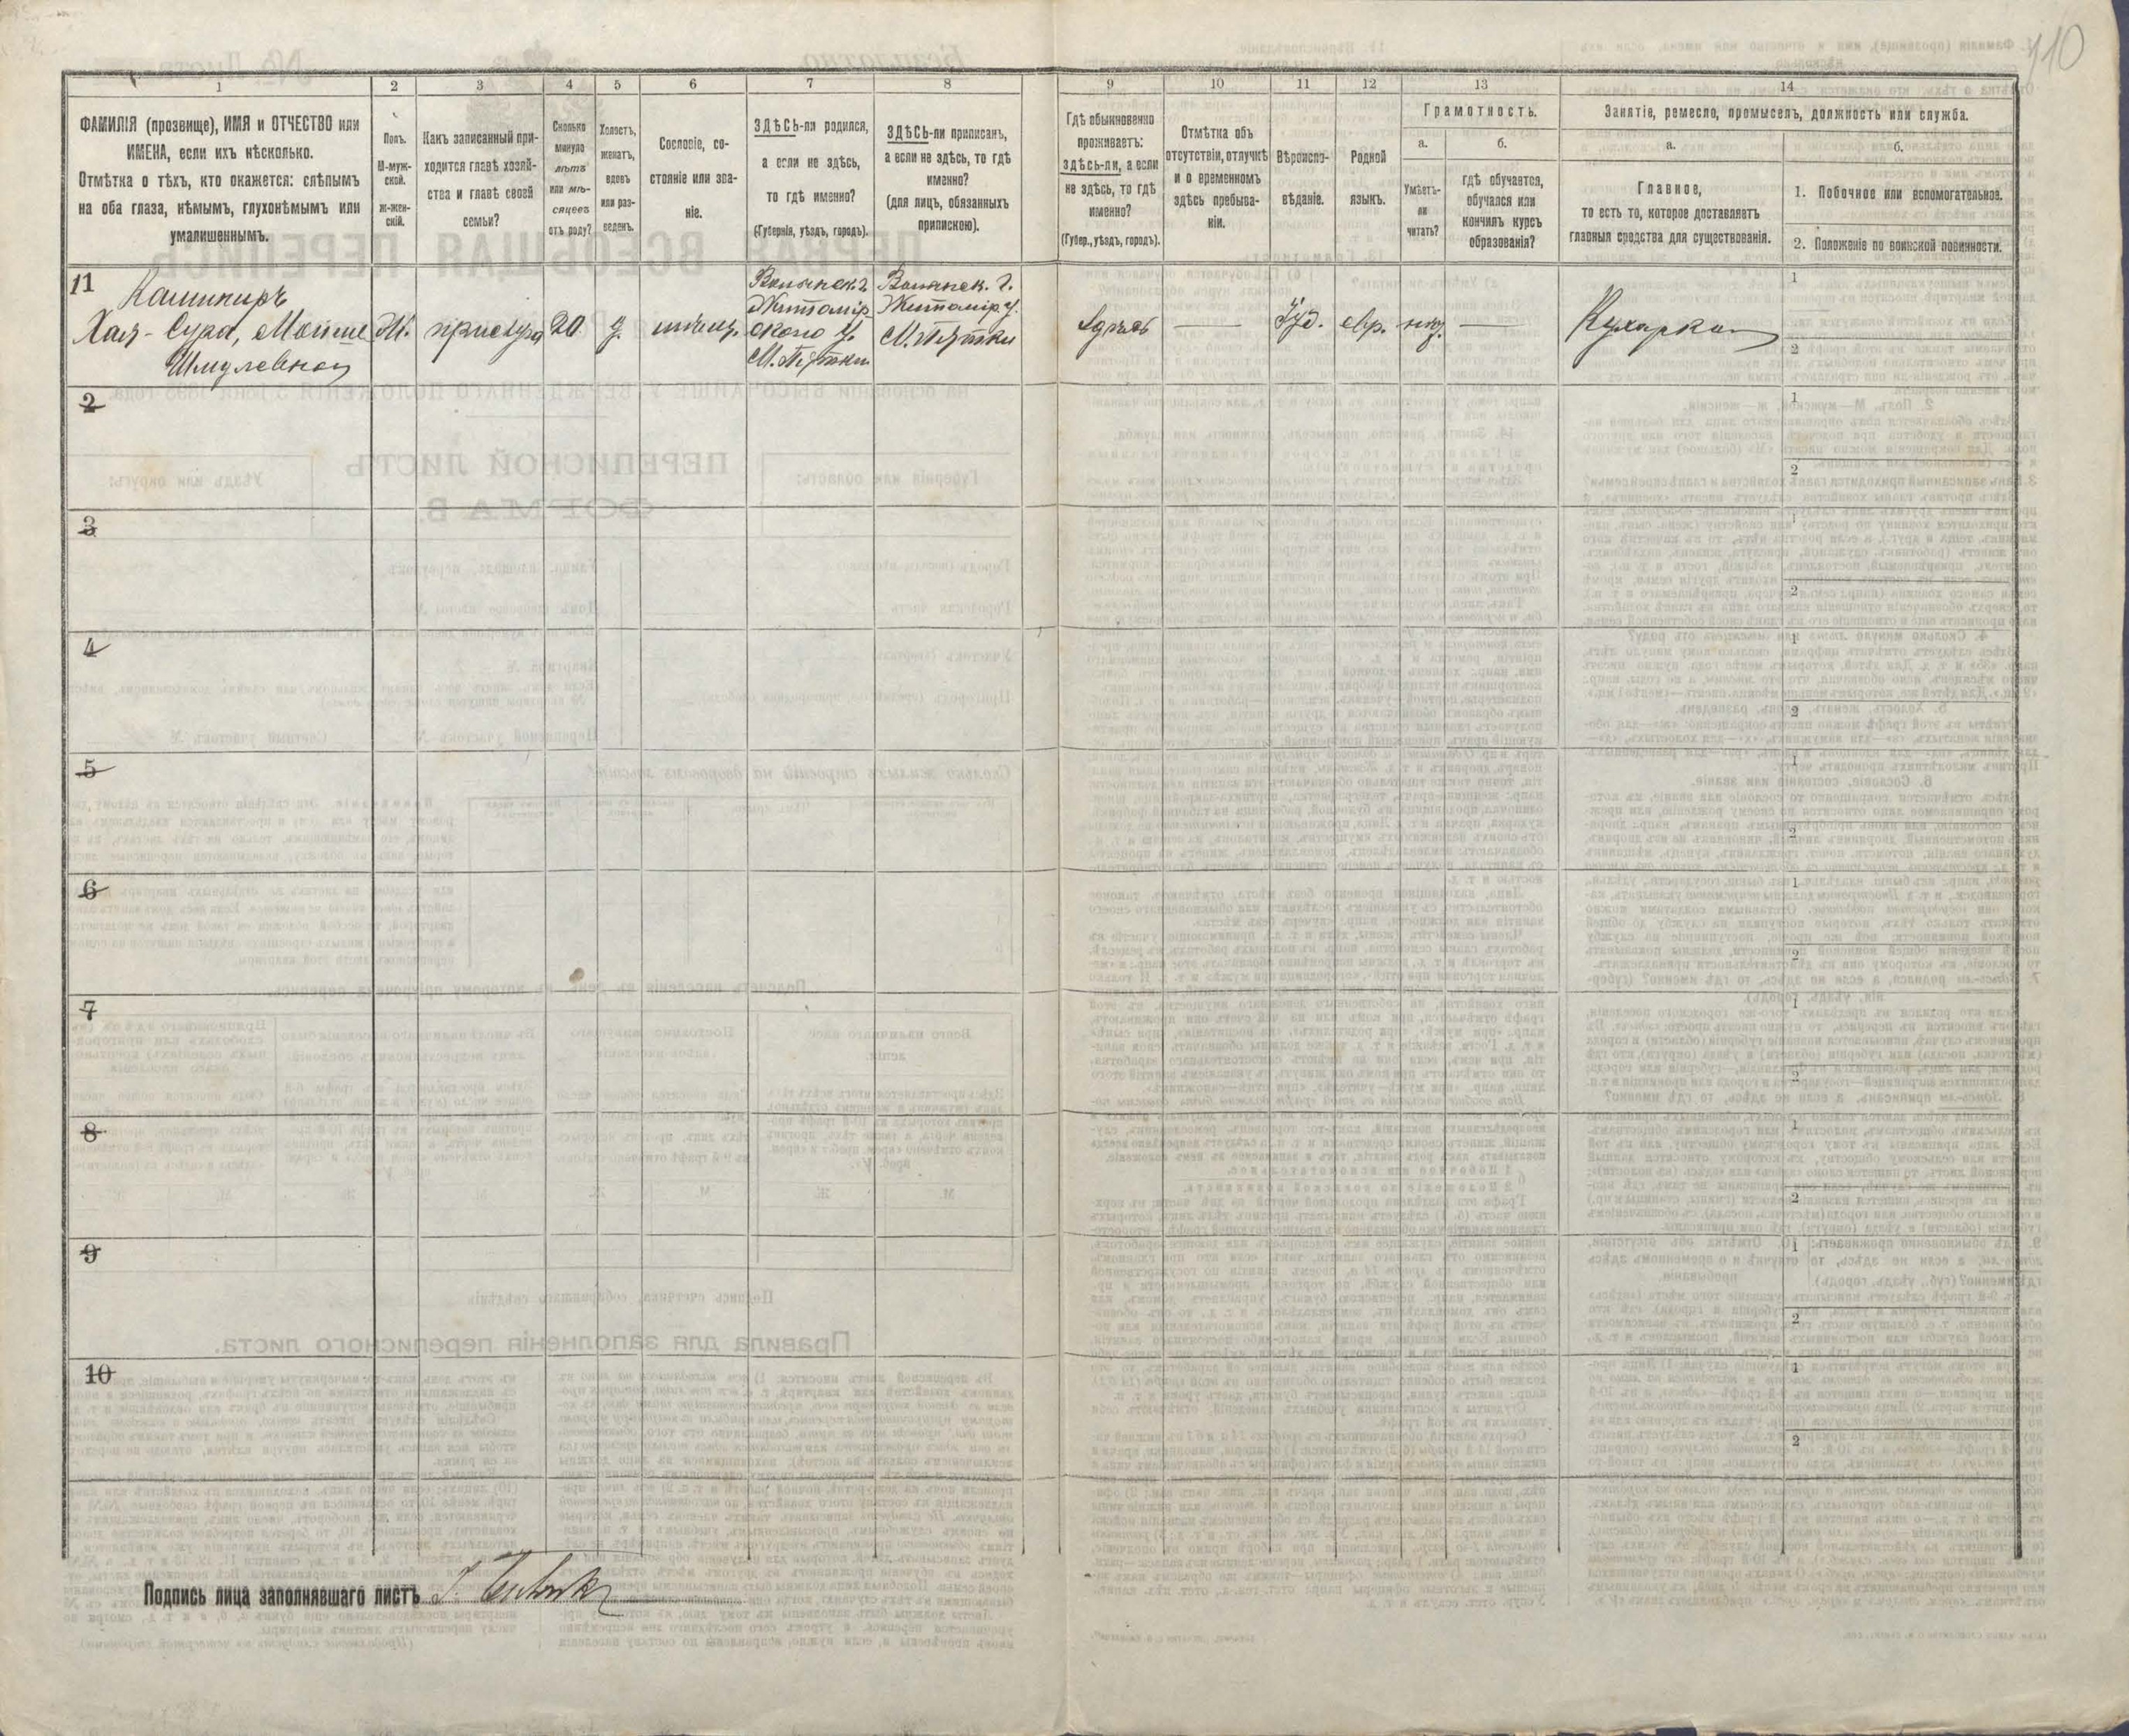 110
1
2
3
4
5
6
7
8
9
10
11
12
13
14
ФАМИЛІЯ (прозвище), ИМЯ и ОТЧЕСТВО или
ИМЕНА, если ихъ нѣсколько.
Отмѣтка о тѣхъ, кто окажется: слѣпымъ
на оба глаза, нѣмымъ, глухонѣмымъ или
умалишеннымъ.
Полъ.
М-муж-
ской.
Ж-жен-
скій.
Какъ записанный при-
ходится главѣ хозяй-
ства и главѣ своей
семьи?
Сколько
минуло
лѣтъ
или мѣ-
сяцевъ
отъ роду?
Холостъ,
женатъ,
вдовъ
или раз-
веденъ.
Сословіе, со-
стояніе или зва-
ніе.
ЗДѢСЬ-ли родился,
а если не здѣсь,
то гдѣ именно?
(Губернія, уѣздъ, городъ).
ЗДѢСЬ-ли приписанъ,
а если не здѣсь, то гдѣ
именно?
(для лицъ, обязанныхъ
припискою).
Гдѣ обыкновенно
проживаетъ:
здѣсь-ли, а если
не здѣсь, то гдѣ
именно?
(Губер., уѣздъ, городъ).
Отмѣтка объ
отсутствіи, отлучкѣ
и о временномъ
здѣсь пребыва-
ніи.
Вѣроиспо-
вѣданіе.
Родной
языкъ.
Грамотность.
а.
Умѣетъ-
ли
читать?
б.
гдѣ обучается,
обучался или
кончилъ курсъ
образованія?
Занятіе, ремесло, промыселъ, должность или служба.
а.
Главное,
то есть то, которое доставляетъ
главныя средства для существованія.
б.
1. Побочное или вспомогательное.
2. Положеніе по воинской повинности.
11
Хая-Сура, Мойше
Шмулевна
Ж.
прислуга
20
д.
мѣщ.
Волынск. г.
Житомір
ского у.
Волынск. г.
Житомір. у.
здѣсь
Іуд.
евр.
нѣт.
Кухарка
1
2
2
1
2
3
1
2
4
1
2
5
1
2
6
1
2
7
1
2
8
1
2
9
1
2
10
1
2
Подпись лица заполнявшаго листъ